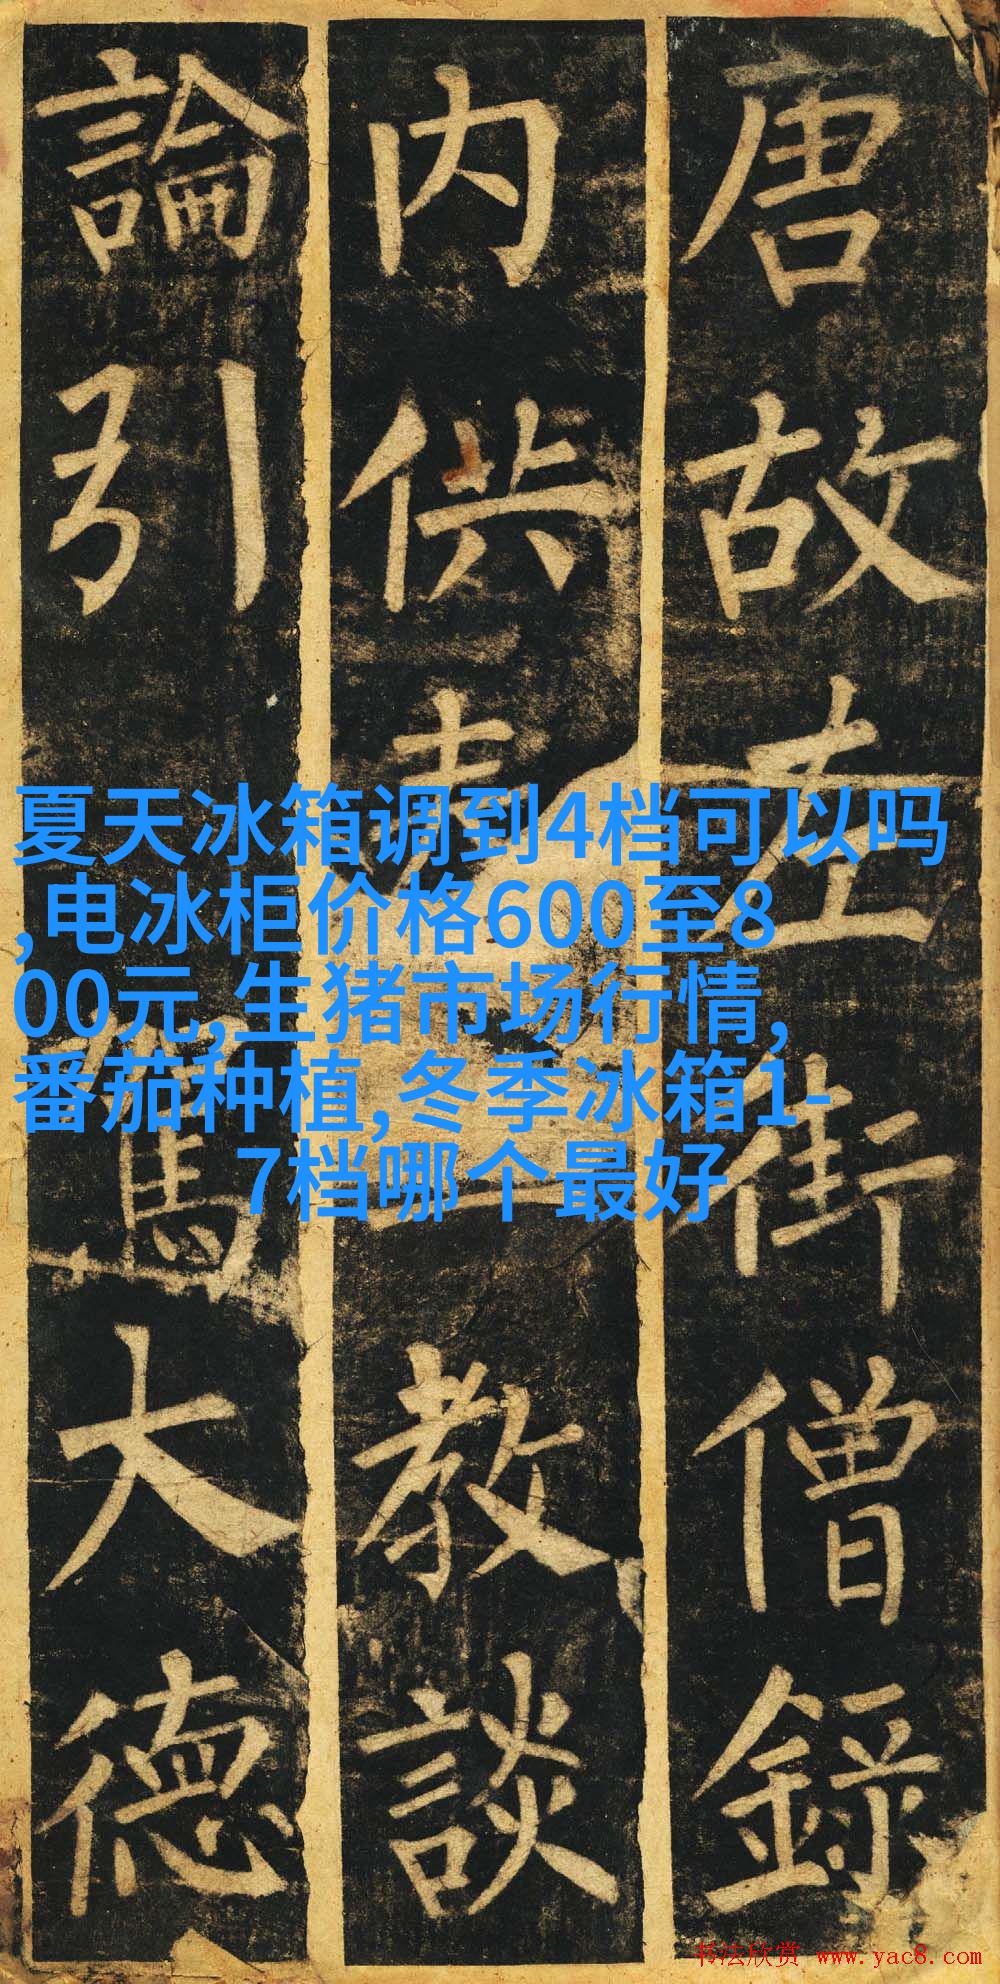 唐故左街僧錄
内供奉三教談
論引駕大德
夏天冰箱调到4档可以吗
,电冰柜价格600至8
00元,生猪市场行情,
番茄种植,冬季冰箱1-
7档哪个最好
书法欣赏 www.yac8.com